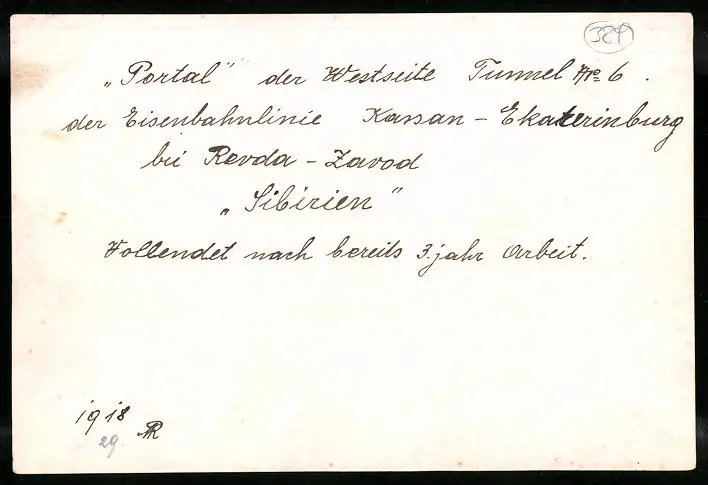 389
„Portal“ der Westseite Tunnel No 6.
der Eisenbahnlinie Kassan - Ekaterinburg
bei Revda - Zavod
„Sibirien“
Vollendet nach bereits 3. jahr Arbeit.
1918
29.